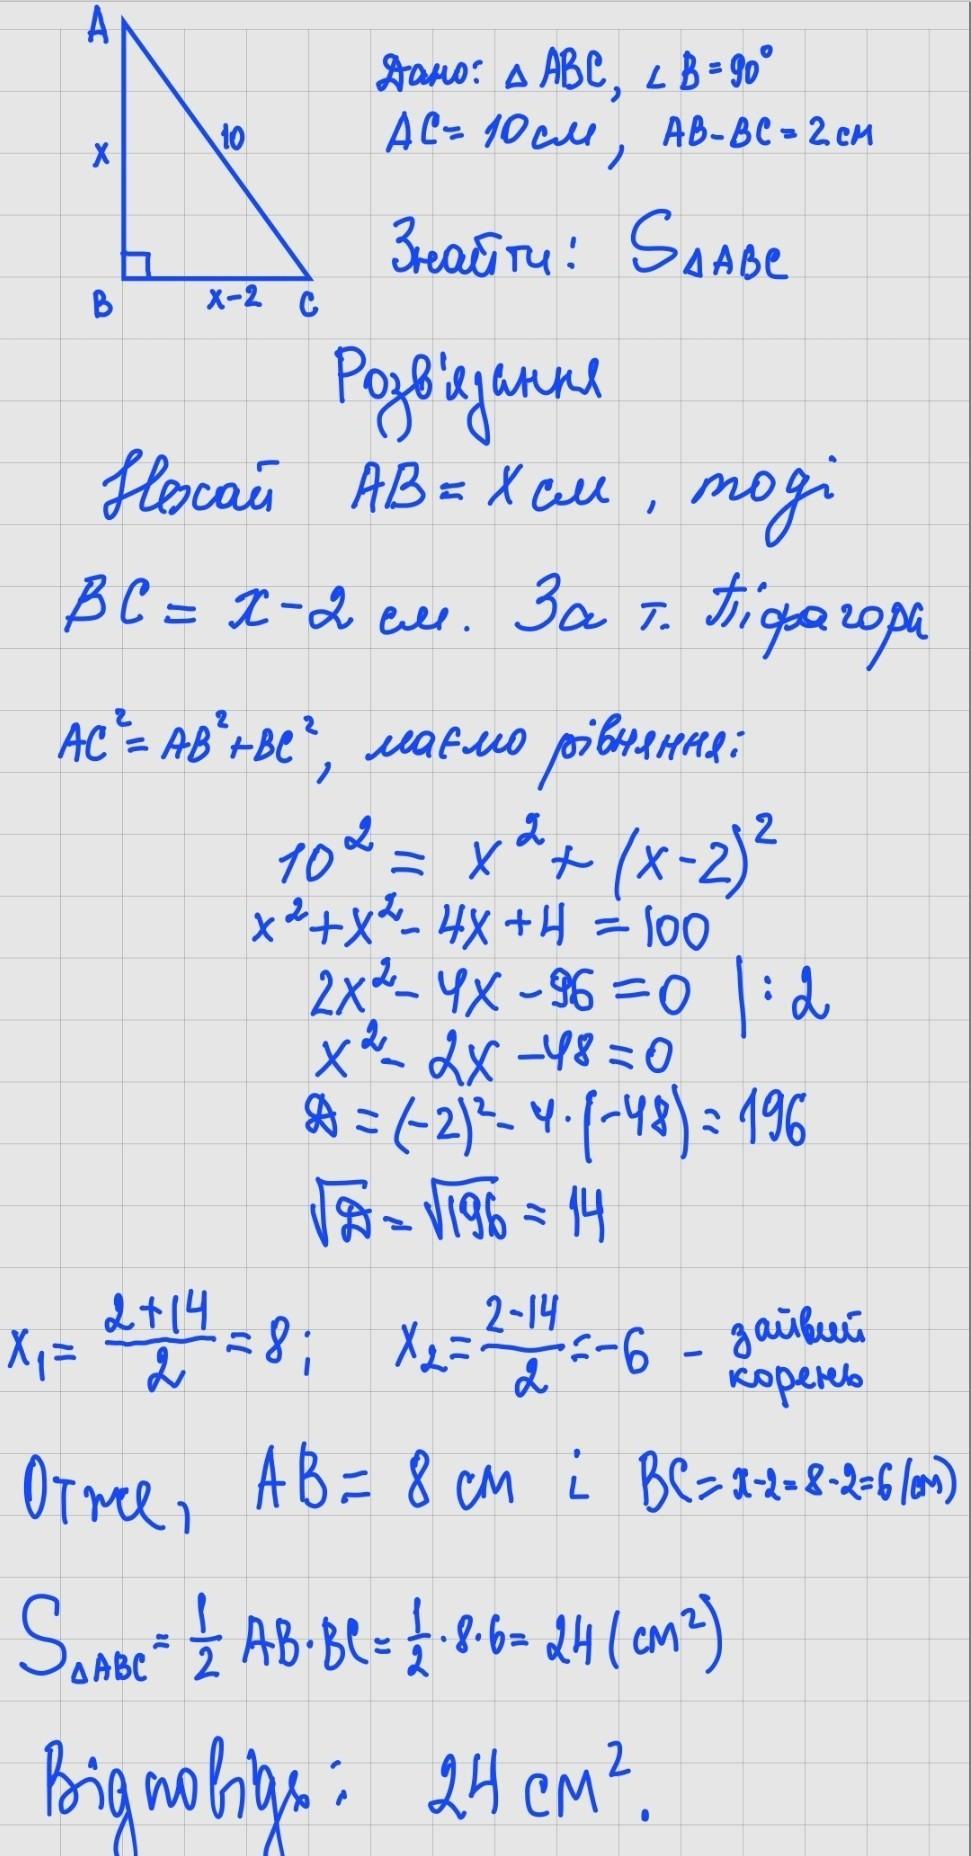 A
Дано: △ ABC, ∠B=90°
x
10
AC=10 см, AB-BC=2 см
Знайти: S△ABC
B
x-2
C
Розв'язання
Нехай AB = x см, тоді
BC = x-2 см. За т. Піфагора
AC²=AB²+BC², маємо рівняння:
10² = x² + (x-2)²
x²+x²-4x+4 =100
2x²-4x-96=0 |:2
x²-2x-48=0
D=(-2)²-4·(-48)=196
√D=√196=14
x₁= (2+14)/2 =8; x₂= (2-14)/2 =-6 - зайвий
корень
Отже, AB= 8 см і BC=x-2=8-2=6(см)
S△ABC = 1/2 AB·BC= 1/2 ·8·6=24 (см²)
Відповідь: 24 см².